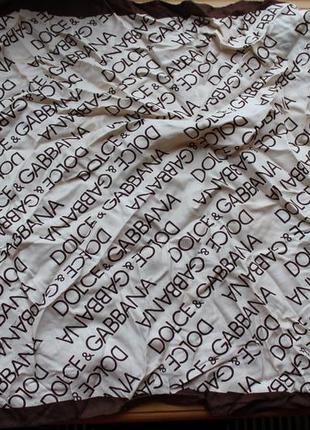 DOLCE & GABBANA
DOLCE & GABBANA
DOLCE & GABBANA
DOLCE & GABBANA
DOLCE & GABBANA
DOLCE & GABBANA
DOLCE & GABBANA
DOLCE & GABBANA
DOLCE & GABBANA
DOLCE & GABBANA
DOLCE & GABBANA
DOLCE & GABBANA